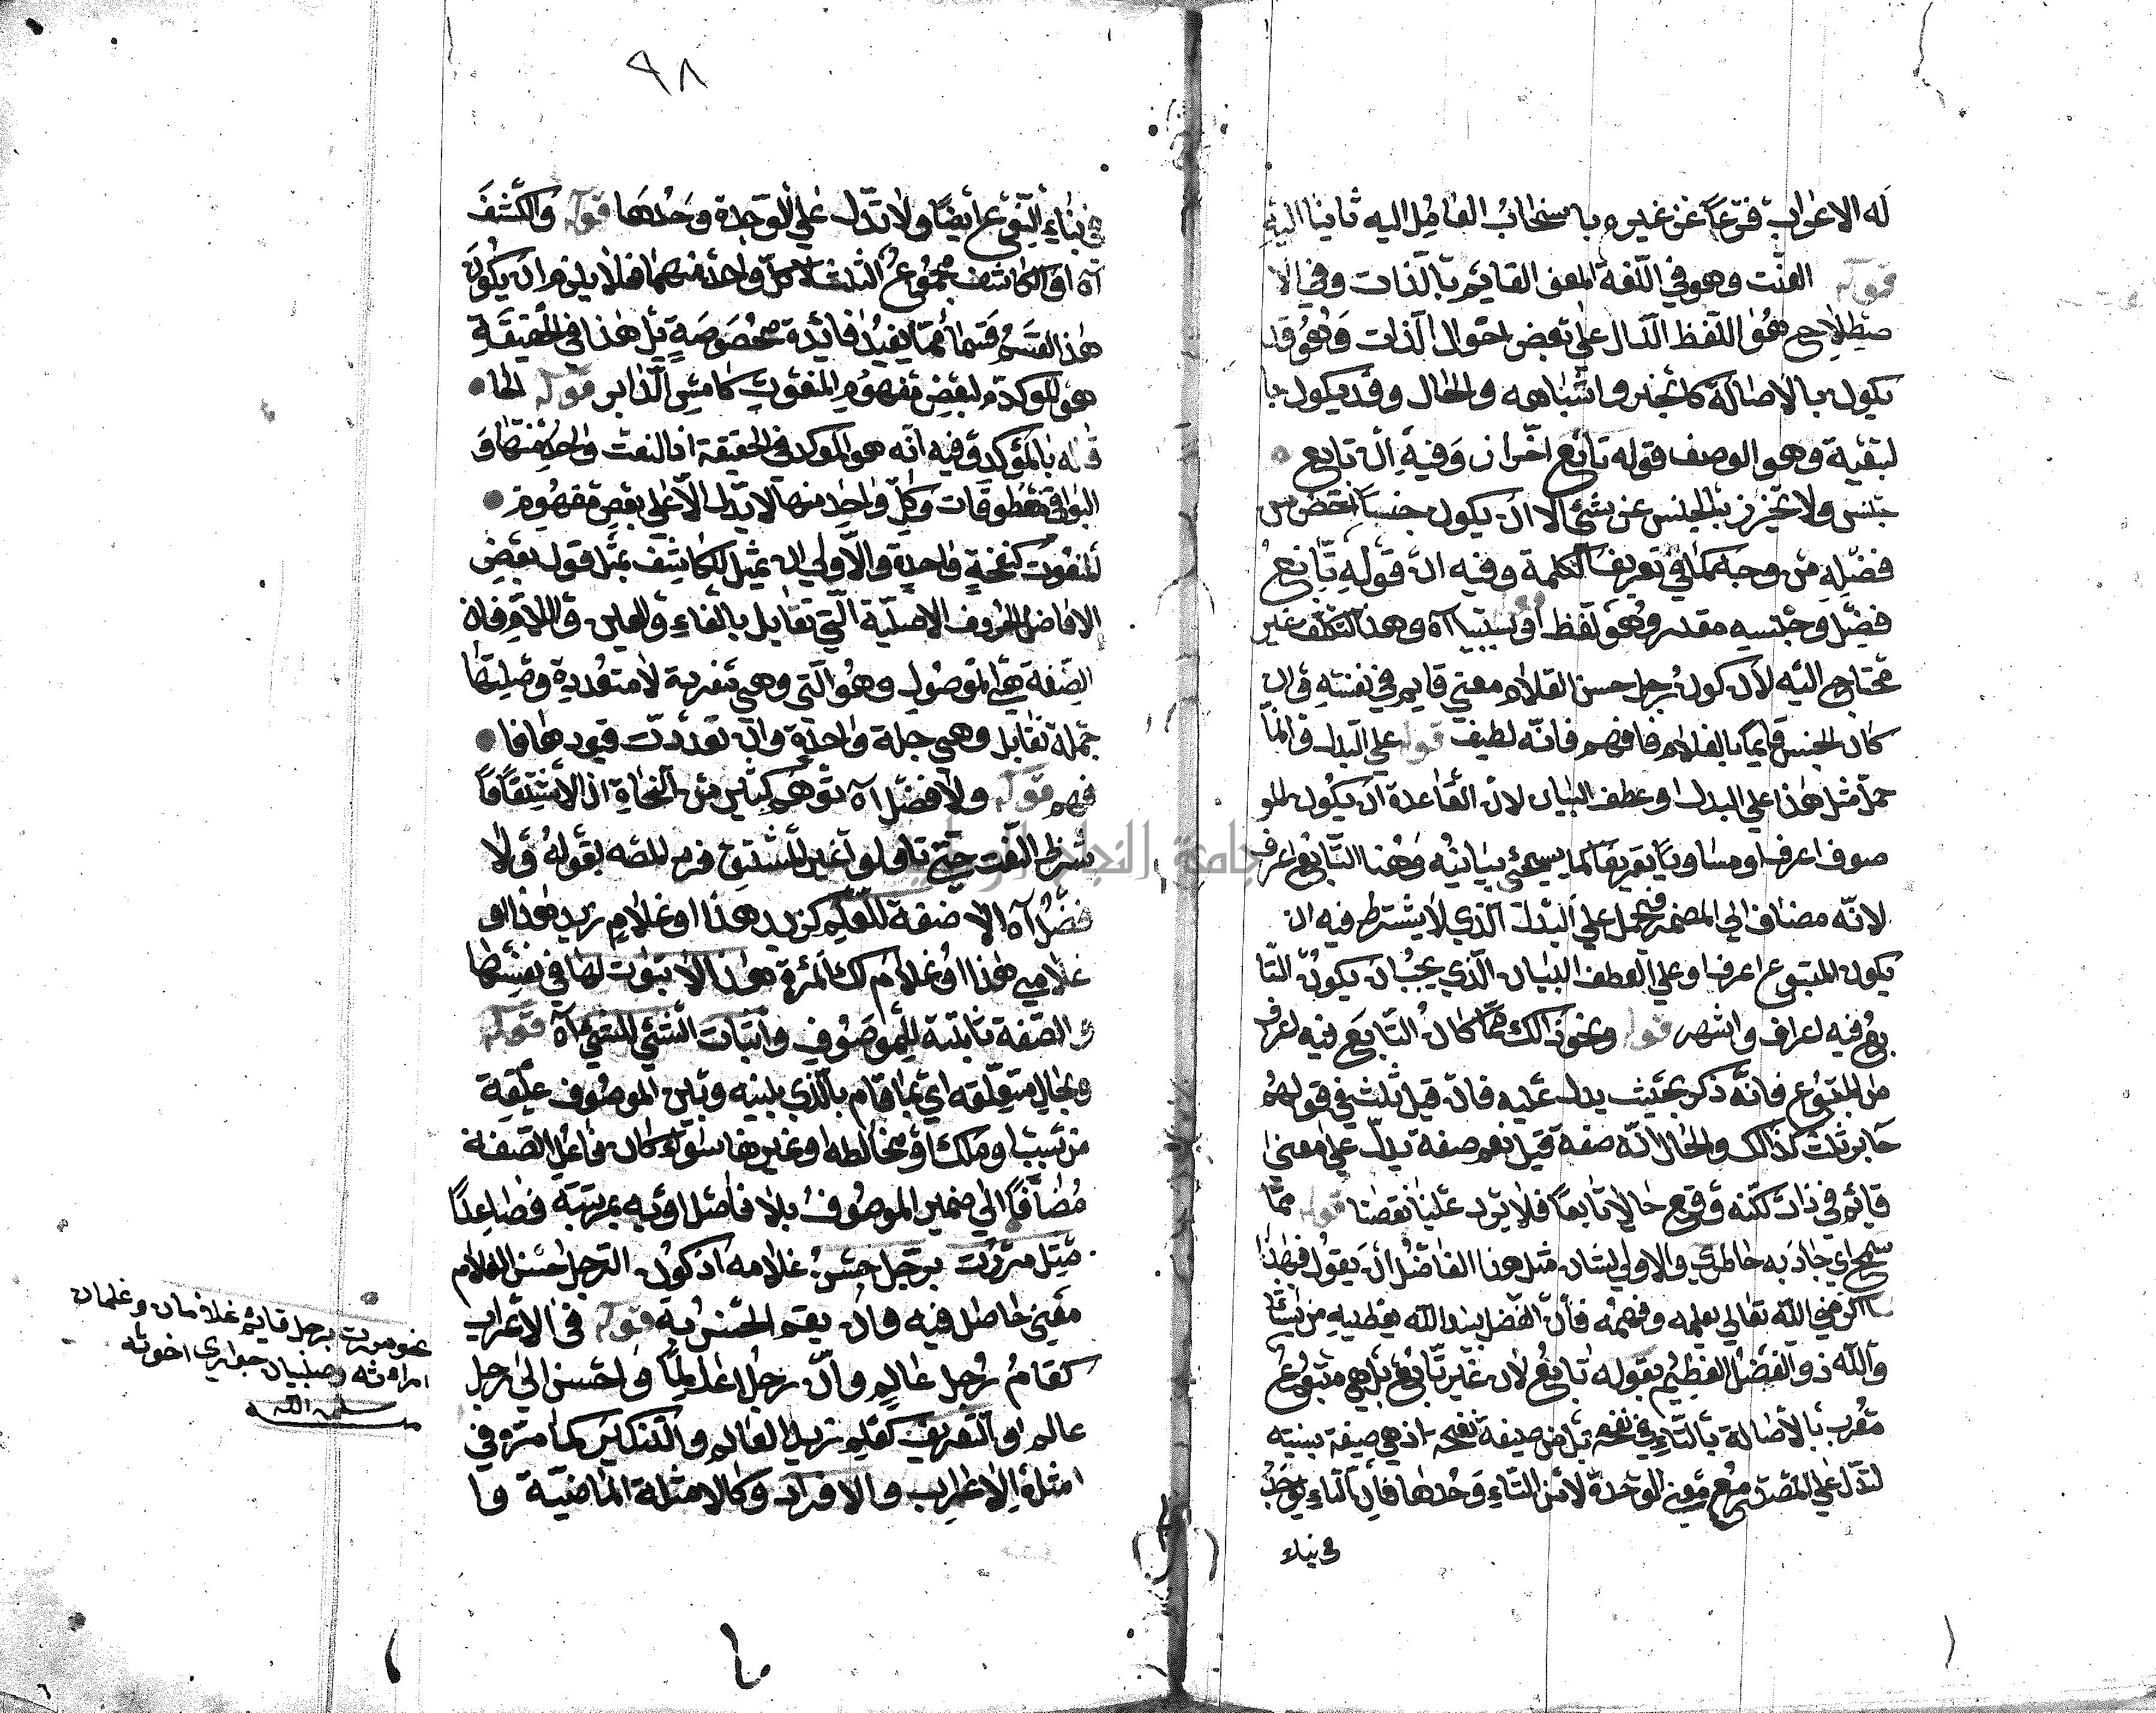 له الاعراب فرعا عن غيره با سنحاب العامل اليه ثانيا
قوله النعت وهو في اللغة المعنى القائم بالذات وفي الا
صطلاح هو اللفظ الدال على بعض احوال الذات وهو قد
يكون بالاصالة كالخبر واشباهه والحال وقد يكون با
لتبعية وهو الوصف قوله تابع احتراز وفيه ان تابع
جنس ولا يحترز بالجنس عن شئ الا ان يكون جنسا اخص من
فصله من وجه كما في تعريف الكلمة وفيه ان قوله تابع
فصل وجنسيه مقدر وهو لفظ او اه وهذا التكلف غير
محتاج اليه لان كون رجل حسن الغلام معنى قايم في نفسه وان
كان الحسن قايما بالغلام فافهم فانه لطيف قوله على البدل وانما
حمل مثل هذا على البدل وعطف البيان لان القاعدة ان يكون المو
صوف اعرف او مساويا تعريفا كما يسيجئ بيانه وهنا التابع اعرف
لانه مضاف الى المضمر فيحمل على البدل الذي لا يشترط فيه ان
يكون المتبوع اعرف او على العطف البيان الذي يجب ان يكون التا
بع فيه اعراف واشهر قوله ونحو ذالك مما كان التابع فيه اعرف
من المتبوع فانه ذكر بحيث يدل عليه فان قيل ثلث في قولهم
جابر ثلث كذالك والحال انه صفة قيل نعم صفة يدل على معنى
قايم في ذات لكنه وقع حالا تابعا فلا يرد علينا نقضا قوله مما
سمح اي جاد به خاطري والاولى بشان مثل هذا الفاضل ان يقول فهذا
الله تعالى بعلمه وفهمه فان الفضل بيد الله يعطيه من يشاء
والله ذو الفضل العظيم بقوله تابع لان غير تابع بل هي متبوع
معرب بالاصالة بالتاء في نفحه بل من صيغة نفحة اذ هي صيغة بنيته
لتدل على المصدر مع معنى الوحدة لا من التاء وحدها فان التاء يوجد
في بناء
٩٨
في بناء النوع ايضا ولا تدل على الوحدة وحدها قوله والكشف
اه اي الكاشف مجموع الثلث لا كل واحد منهما فلا يلزم ان يكون
هذا القسم قسما مما يفيد فائدة مخصوصة بل هذا في الحقيقة
هو الموكد لبعض مفهوم المنعوت كامس الدابر قوله الحا
قا له بالموكد وفيه انه هو الموكد في الحقيقة اذ النعت واحد منها و
البواقي معطوفات وكل واحد منها لا يدل الا على بعض مفهوم
المنعوت كنفخة واحدة والاولى ان يمثل للكاشف بمثل قول بعض
الافاضل الحروف الاصلية التي تقابل بالفاء والعين واللام فان
الصفة هي الموصول وهو التي وهي مفردة لا متعددة وصلتها
جملة تقابل وهي جملة واحدة وان تعددت قيودها فا
فهم قوله ولا فصل اه توهم كثير من النحاة ان الاشتقاق
شرط النعت حتى تاولوا غير المشتق فرد المصه بقوله ولا
فصل اه الا صفة للعلم كزيد هذا او غلام زيد هذا او
غلامي هذا او غلامك المرة هذا لا ثبوت لها في نفسها
والصفة ثابتة للموصوف واثبات الشئ للشئ اه قوله
وبحال متعلقه اي بما قام بالذي بينه وبين الموصوف علقة
من سبب او ملك او مخالطه او غيرها سواء كان فاعل الصفة
مضافا الى ضمير الموصوف بلا فاصل او به بمرتبة فصاعدا
مثل مررت برجل حسن غلامه اذ كون الرجل حسن الغلام
معنى حاصل فيه وان يقم الحسن به قوله في الاعراب
كقام رجل عالم وان رجلا عالما واحسن الى رجل
عالم او التعريف كعلم زيد العالم والتنكير كما مر في
امثلة الاعراب والافراد وكالامثلة الماضية وا
نحو مررت برجل قايم غلامان وغلمان
امراته وصبيان جواري اخوته
سلمه الله
جامعة النجاح الوطنية